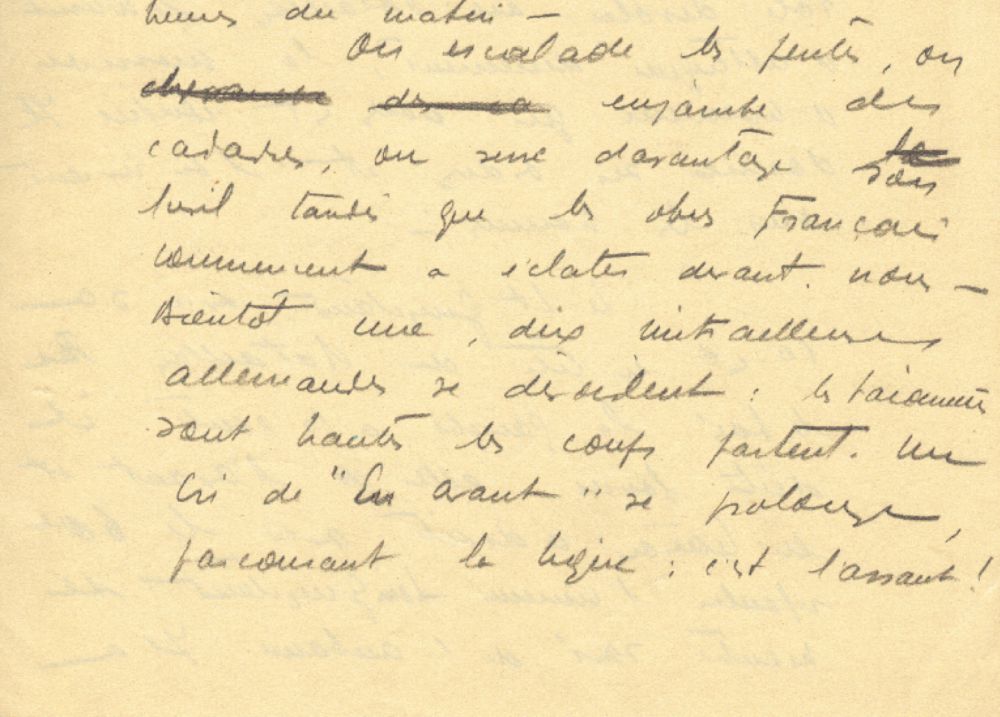 heures du matin —
On escalade les pentes, on
enjambe des
cadavres, on serre davantage son
fusil tandis que les obus Français
commencent a éclater devant nous —
Bientôt une, dix mitrailleuses
allemandes se dévoilent : les baïonnettes
sont hautes les coups partent. Un
cri de "En avant" se prolonge,
parcourant la ligne : c'est l'assaut !